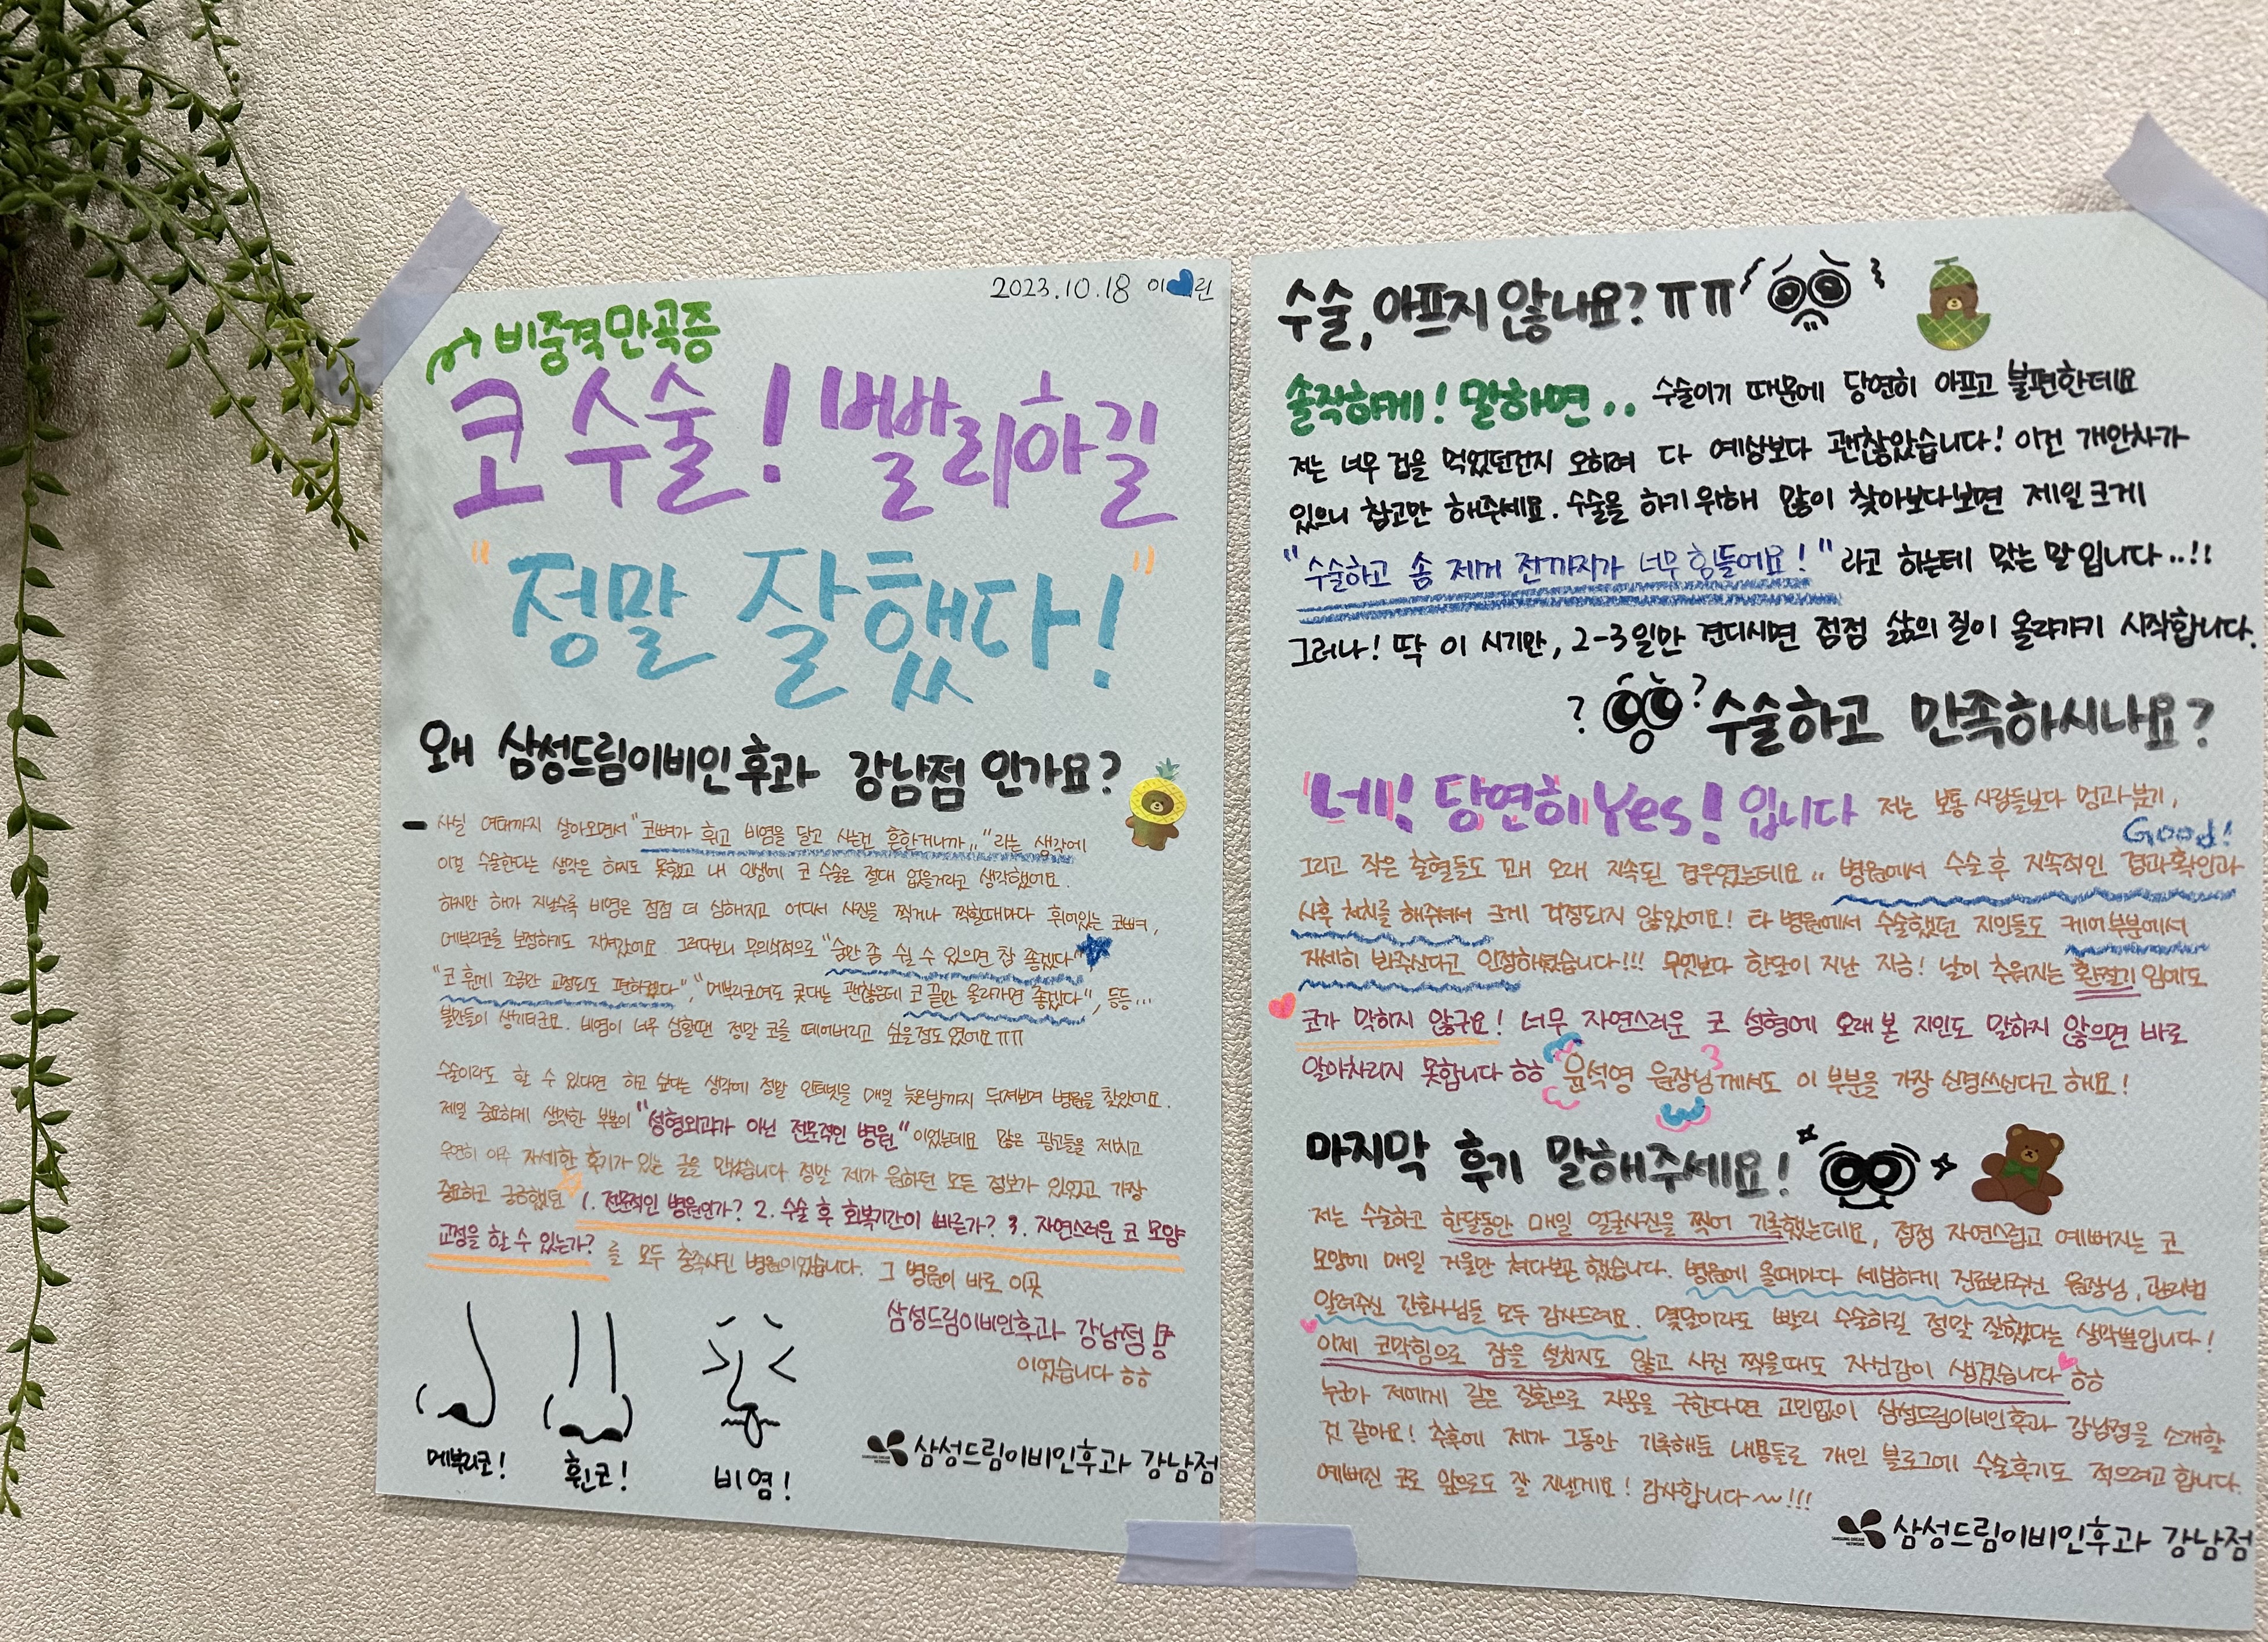 2023.10.18 이💙린
비중격만곡증
코 수술! 빨리하길
"정말 잘했다!"
왜 삼성드림이비인후과 강남점 인가요?
- 사실 여태까지 살아오면서 "코뼈가 휘고 비염을 달고 사는건 흔한거니까.." 라는 생각에
이걸 수술한다는 생각은 하지도 못했고 내 인생에 코 수술은 절대 없을거라고 생각했어요.
하지만 해가 지날수록 비염은 점점 더 심해지고 어디서 사진을 찍거나 찍힐때마다 휘어있는 코뼈,
메부리코를 보정하기도 지쳐갔어요. 그러다보니 무의식적으로 "숨만 좀 쉴 수 있으면 참 좋겠다"
"코 휜게 조금만 교정되도 편하겠다", "메부리코여도 콧대는 괜찮은데 코 끝만 올라가면 좋겠다", 등등...
불만들이 생기더군요. 비염이 너무 심할땐 정말 코를 떼어버리고 싶을정도였어요ㅠㅠ
수술이라도 할 수 있다면 하고 싶다는 생각에 정말 인터넷을 매일 늦은밤까지 뒤져보며 병원을 찾았어요.
제일 중요하게 생각한 부분이 "성형외과가 아닌 전문적인 병원" 이었는데요 많은 광고들을 제치고
우연히 아주 자세한 후기가 있는 글을 만났습니다 정말 제가 원하던 모든 정보가 있었고 가장
중요하고 궁금했던 1. 전문적인 병원인가? 2. 수술 후 회복기간이 빠른가? 3. 자연스러운 코 모양
교정을 할 수 있는가? 를 모두 충족시킨 병원이었습니다. 그 병원이 바로 이곳
삼성드림이비인후과 강남점
이었습니다 ㅎㅎ
메부리코! 휜코! 비염!
삼성드림이비인후과 강남점
수술, 아프지 않나요? ㅠㅠ
솔직하게! 말하면.. 수술이기 때문에 당연히 아프고 불편한데요
저는 너무 겁을 먹었던건지 오히려 다 예상보다 괜찮았습니다! 이건 개안차가
있으니 참고만 해주세요. 수술을 하기 위해 많이 찾아보다보면 제일 크게
"수술하고 솜 제거 전까지가 너무 힘들어요!" 라고 하는데 맞는 말입니다..!!
그러나! 딱 이 시기만, 2-3일만 견디시면 점점 삶의 질이 올라가기 시작합니다.
? ? 수술하고 만족하시나요?
"네! 당연히 Yes! 입니다 저는 보통 사람들보다 멍과 붓기,
Good!
그리고 작은 출혈들도 꽤 오래 지속된 경우였는데요.. 병원에서 수술 후 지속적인 경과확인과
사후 처치를 해주셔서 크게 걱정되지 않았어요! 타 병원에서 수술했던 지인들도 케어부분에서
자세히 봐주신다고 인정하셨습니다!!! 무엇보다 한달이 지난 지금! 날이 추워지는 환절기 임에도
코가 막히지 않구요! 너무 자연스러운 코 성형에 오래 본 지인도 말하지 않으면 바로
알아차리지 못합니다 ㅎㅎ 윤석영 원장님께서도 이 부분을 가장 신경쓰신다고 해요!
마지막 후기 말해주세요!
저는 수술하고 한달동안 매일 얼굴사진을 찍어 기록했는데요, 점점 자연스럽고 예뻐지는 코
모양에 매일 거울만 쳐다보곤 했습니다. 병원에 올때마다 세심하게 진료봐주신 원장님, 관리법
알려주신 간호사님들 모두 감사드려요. 몇달이라도 빨리 수술하길 정말 잘했다는 생각뿐입니다!
이제 코막힘으로 잠을 설치지도 않고 사진 찍을때도 자신감이 생겼습니다 ㅎㅎ
누군가 저에게 같은 질환으로 자문을 구한다면 고민없이 삼성드림이비인후과 강남점을 소개할
것 같아요! 추후에 제가 그동안 기록해둔 내용들로 개인 블로그에 수술후기도 적으려고 합니다.
예뻐진 코로 앞으로도 잘 지낼게요! 감사합니다~!!!
삼성드림이비인후과 강남점